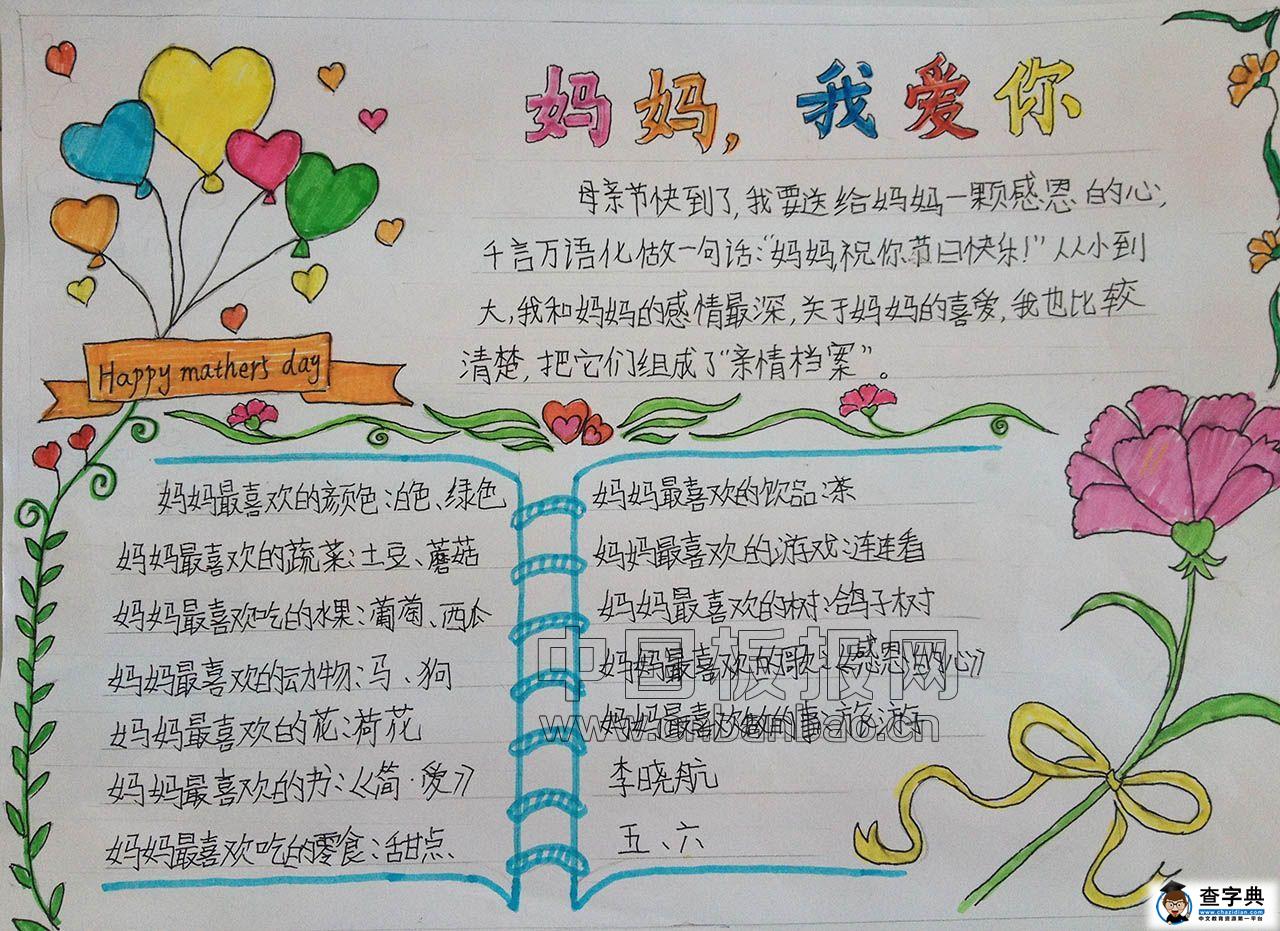 妈妈，我爱你
母亲节快到了，我要送给妈妈一颗感恩的心，
千言万语化做一句话：“妈妈，祝你节日快乐！”从小到
大，我和妈妈的感情最深，关于妈妈的喜爱，我也比较
清楚，把它们组成了“亲情档案”。
Happy mathers day
妈妈最喜欢的颜色：白色、绿色
妈妈最喜欢的蔬菜：土豆、蘑菇
妈妈最喜欢吃的水果：葡萄、西瓜
妈妈最喜欢的动物：马、狗
妈妈最喜欢的花：荷花
妈妈最喜欢的书：《简·爱》
妈妈最喜欢吃的零食：甜点、
妈妈最喜欢的饮品：茶
妈妈最喜欢的游戏：连连看
妈妈最喜欢的树：鸽子树
妈妈最喜欢的歌：《感恩的心》
妈妈最喜欢做的事：旅游
李晓航
五、六
中国板报网
www.cnbanbao.cn
查字典
www.chazidian.com
中文教育资源第一平台